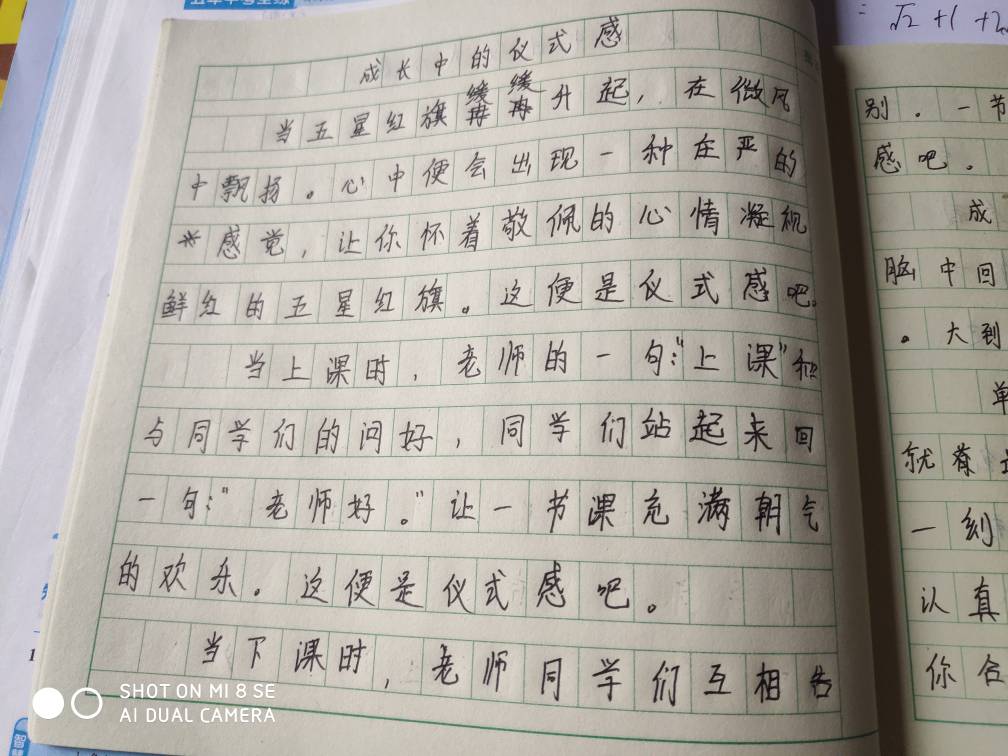 成长中的仪式感
当五星红旗缓缓升起，在微风
中飘扬。心中便会出现一种庄严的
感觉，让你怀着敬佩的心情凝视
鲜红的五星红旗。这便是仪式感吧。
当上课时，老师的一句："上课"和
与同学们的问好，同学们站起来回
一句："老师好。"让一节课充满朝气
的欢乐。这便是仪式感吧。
当下课时，老师同学们互相告
别。一节
感吧。
成
脑中回
。大到
单
就着
一刻
认真
你合
√2 +1 +2
SHOT ON MI 8 SE
AI DUAL CAMERA